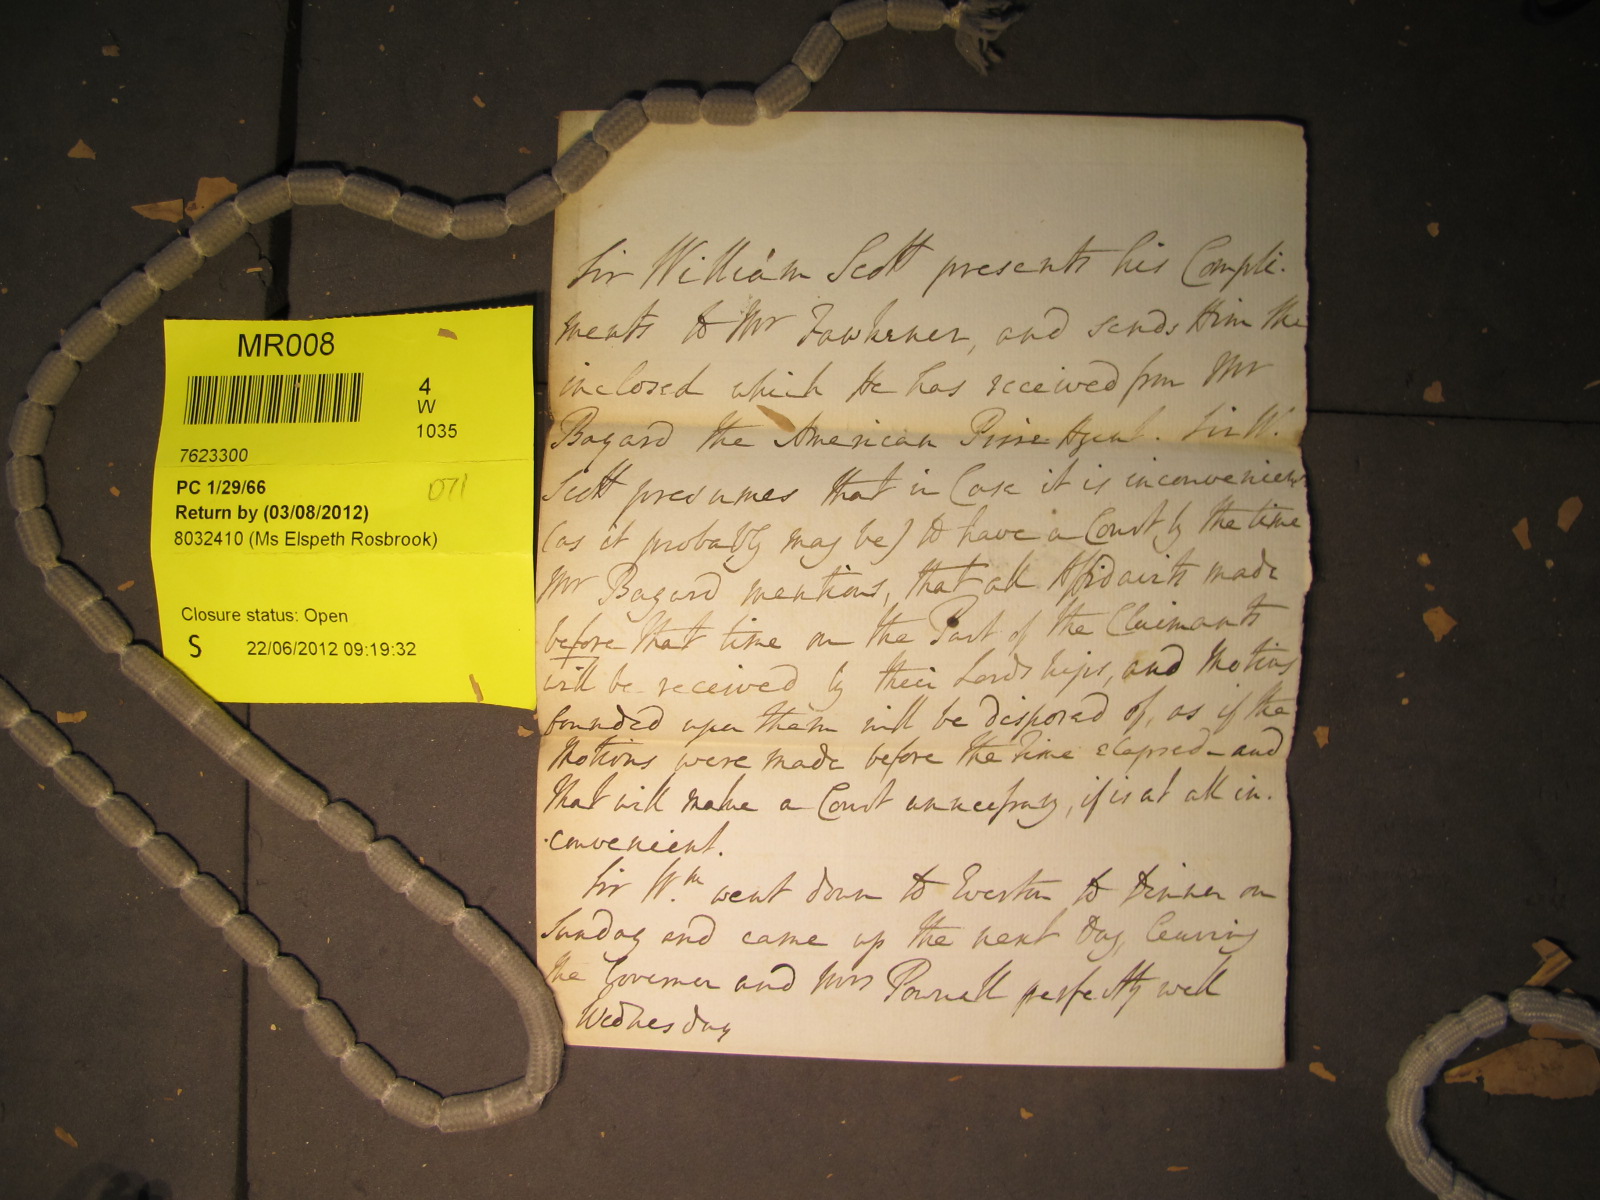 MR008
4
W
1035
7623300
PC 1/29/66
071
Return by (03/08/2012)
8032410 (Ms Elspeth Rosbrook)
Closure status: Open
S 22/06/2012 09:19:32
Sir William Scott presents his Compli-
ments to Mr Fawkener, and sends Him the
inclosed which He has received from Mr
Bayard the American Prize Agent. Sir W.
Scott presumes that in Case it is inconvenient
(as it probably may be) to have a Court by the time
Mr Bayard mentions, that all Affidavits made
before that time on the Part of the Claimants
will be received by their Lordships, and Motions
founded upon them will be disposed of, as if the
Motions were made before the Time elapsed - and
that will make a Court unnecessary, if is at all in-
-convenient.
Sir Wm went down to Everton to Dinner on
Sunday and came up the next Day, leaving
the Governor and Mrs Pownall perfectly well
Wednesday